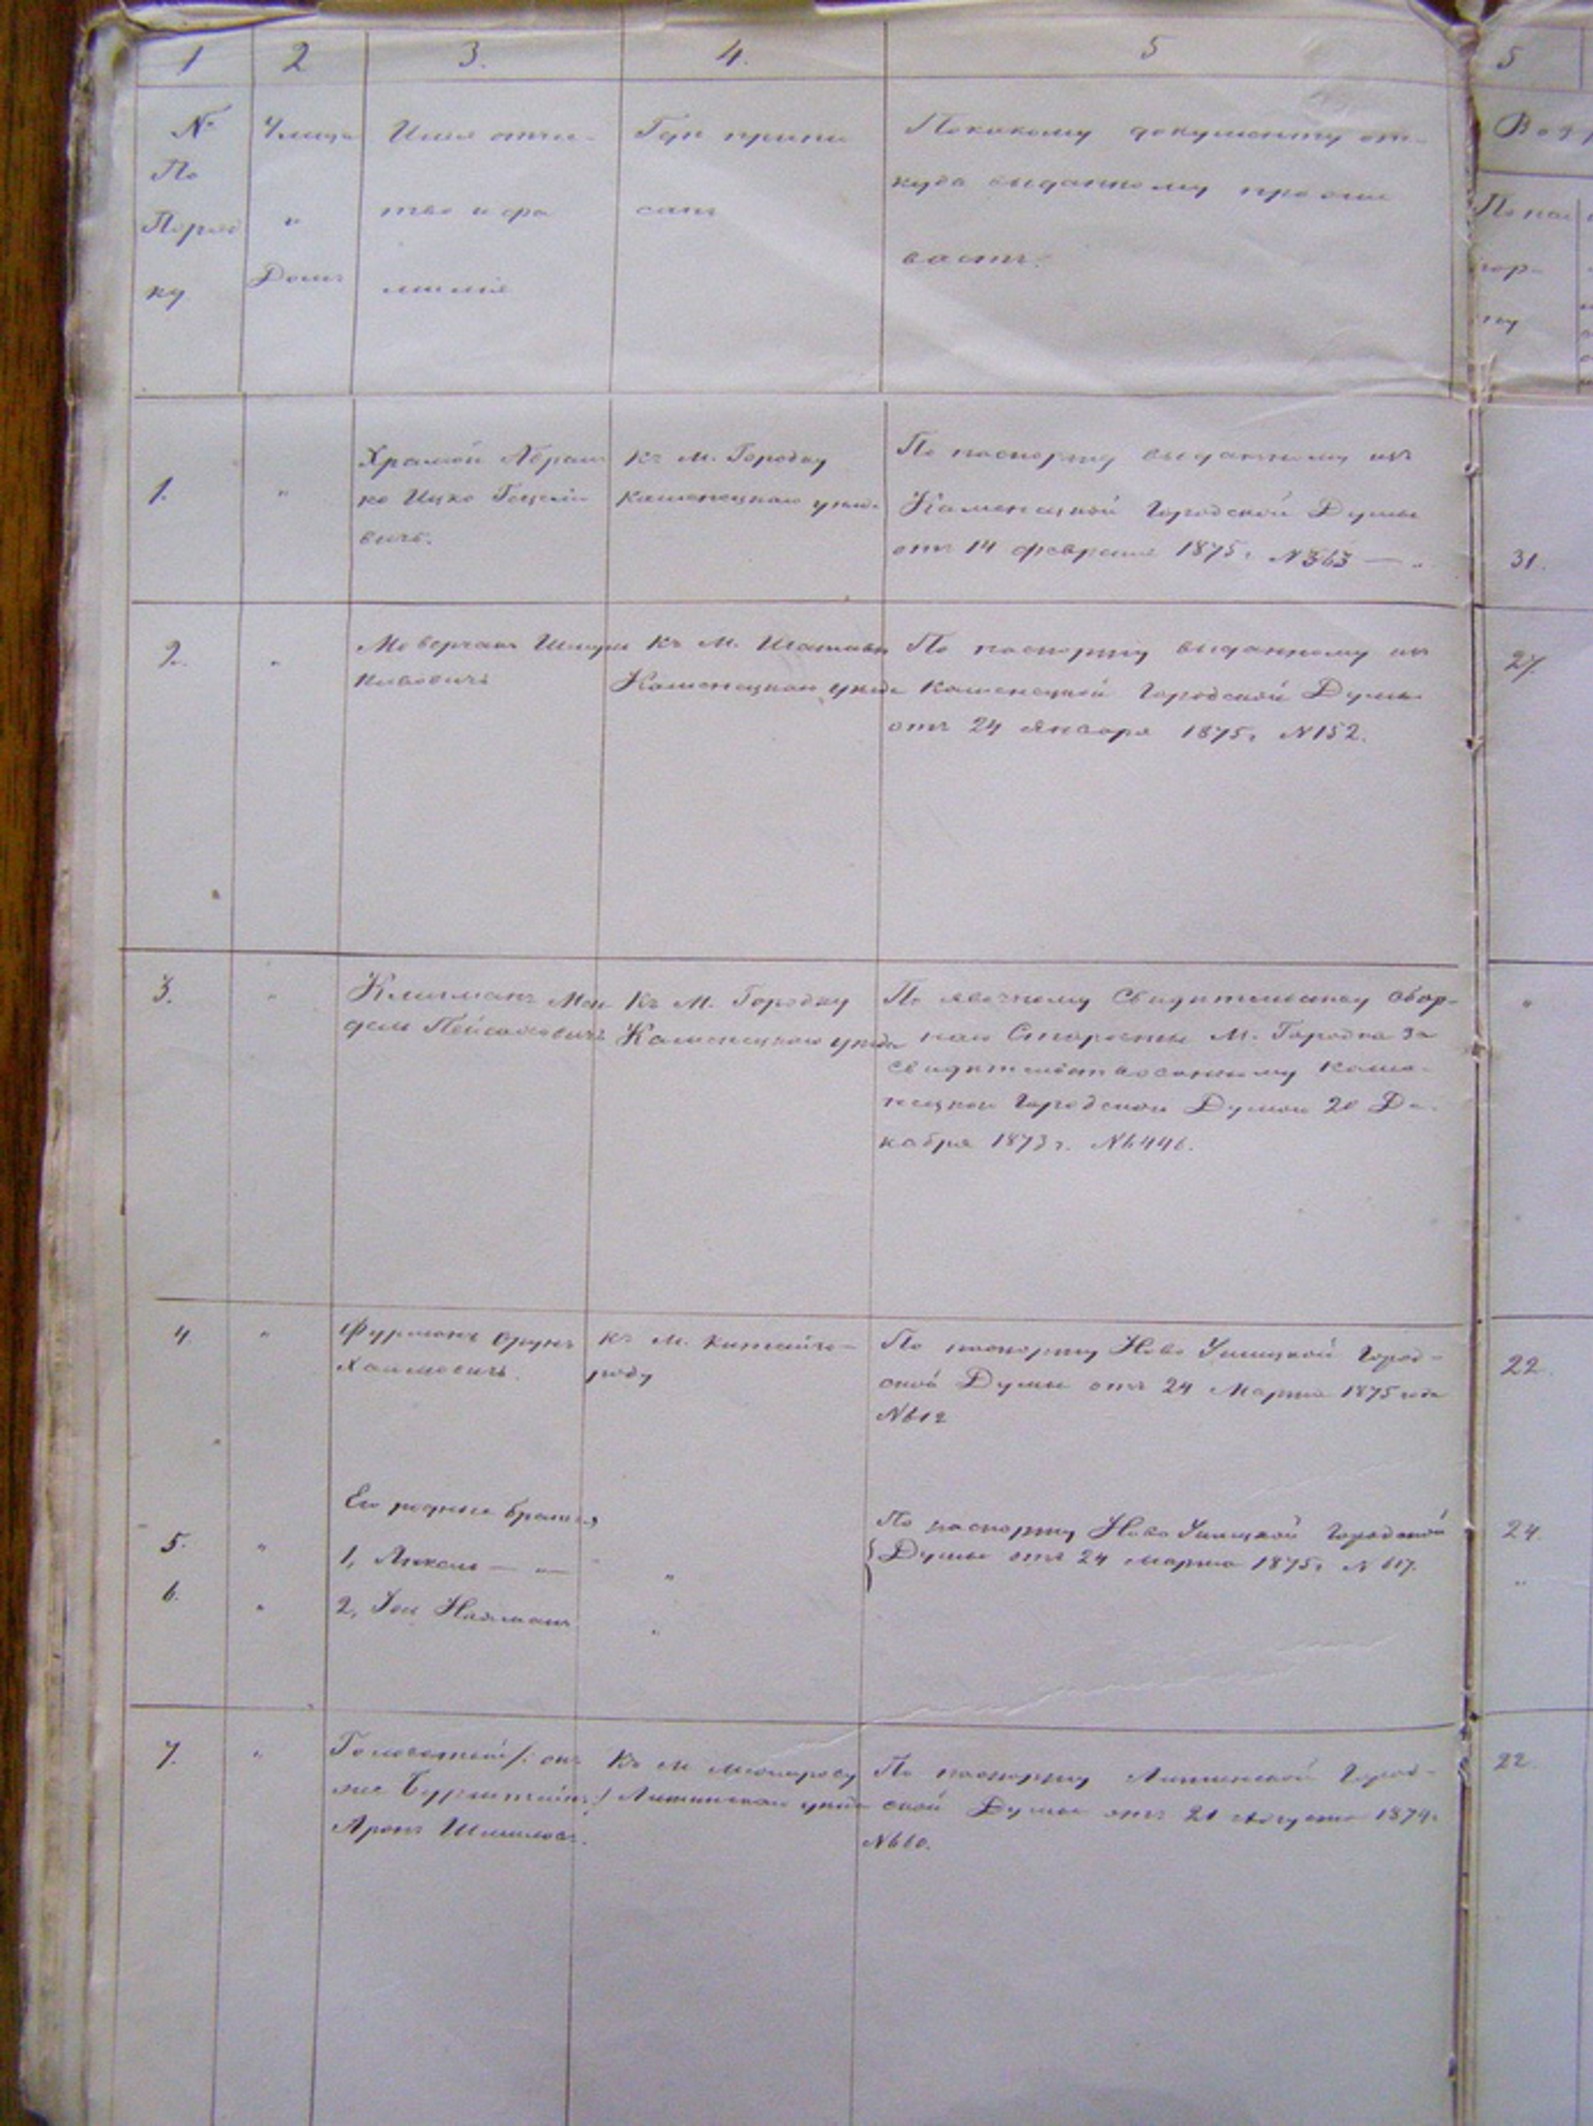 1 2 3. 4. 5 5
№ По Поряд ку
Улица " Домъ
Имя отче- тво и фа милiя
Гдѣ припи санъ
По какому документу от- куда выданному прожи ваетъ.
По пас пор- ту
1. " Храмой Абрам ко Ицко Гецеле вичъ.
Къ М. Городку Каменецкаго уѣзда
По паспорту выданному изъ
Каменецкой Городской Думы
отъ 14 февраля 1875г. №363 — "
31.
2. " Шмуль Кивовичъ
Къ М. Шатаве Каменецкаго уѣзда
По паспорту выданному изъ
Каменецкой Городской Думы
отъ 24 Января 1875г. №152.
27.
3. " Клигманъ Мен дель Пейсаховичъ
Къ М. Городку Каменецкаго уѣзда
По явочному Свидетельству Сбор-
наго Старосты М. Городка за
свидетельствованному Каме-
нецкой Городской Думой 20 Де-
кабря 1873г. №6446.
"
4. " Фурманъ Срулъ Хаимовичъ.
Къ М. Китайго- роду
По паспорту Ново Ушицкой Город-
ской Думы отъ 24 Марта 1875 года
№612
22.
Его родные братья,
5. " 1, Янкель — " — "
6. " 2, Іось Нахманъ "
По паспорту Ново Ушицкой Городской
Думы отъ 24 марта 1875г. №617.
24.
"
7. " Головатый /: онъ же Бурштейнъ :/ Аронъ Шмилов.
Къ М Межирову Литинскаго уѣзда
По паспорту Литинской Город-
ской Думы отъ 21 Августа 1874.
№660.
22.